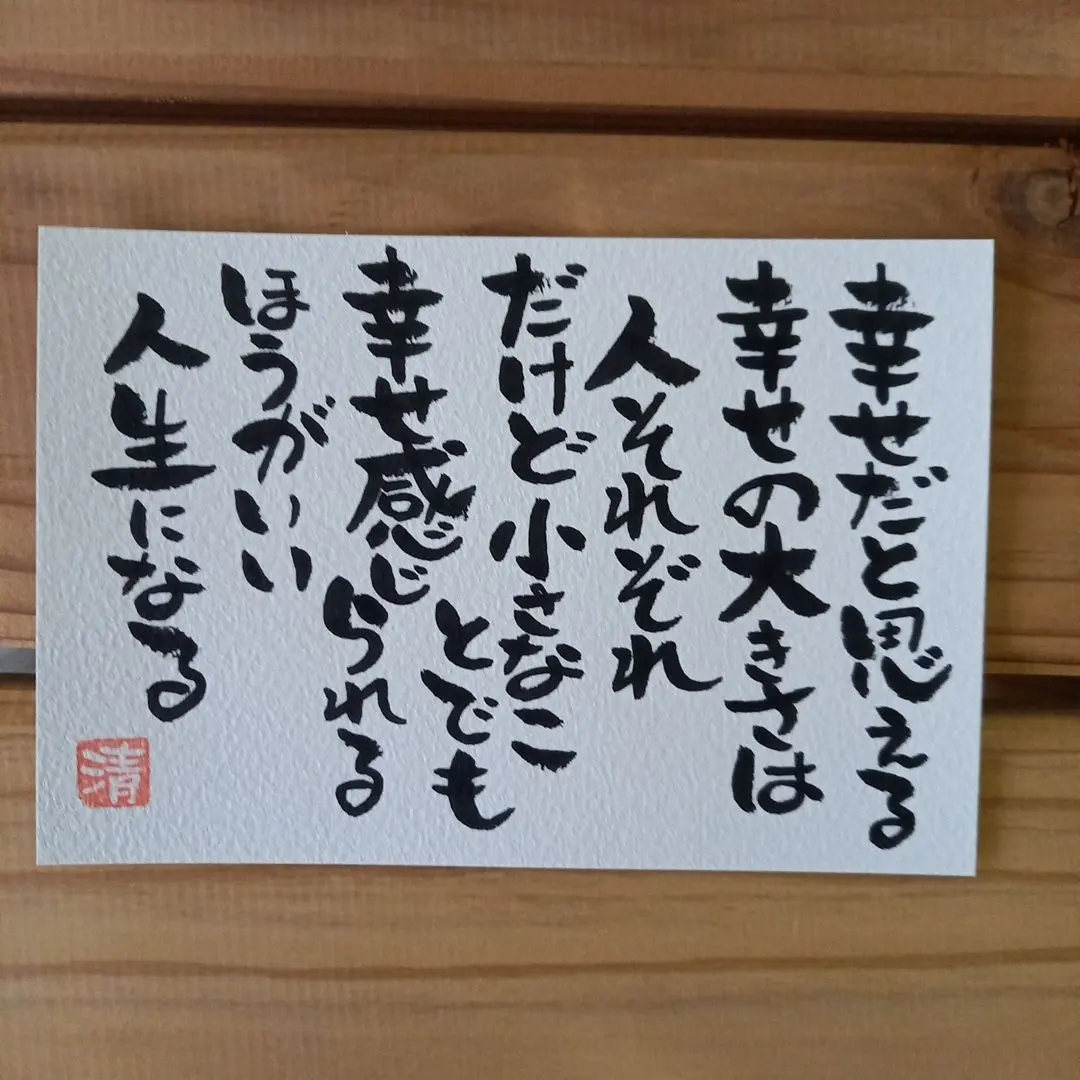 幸せだと思える
幸せの大きさは
人それぞれ
だけど小さなこ
とでも
幸せ感じ
られる
ほうがいい
人生になる
清